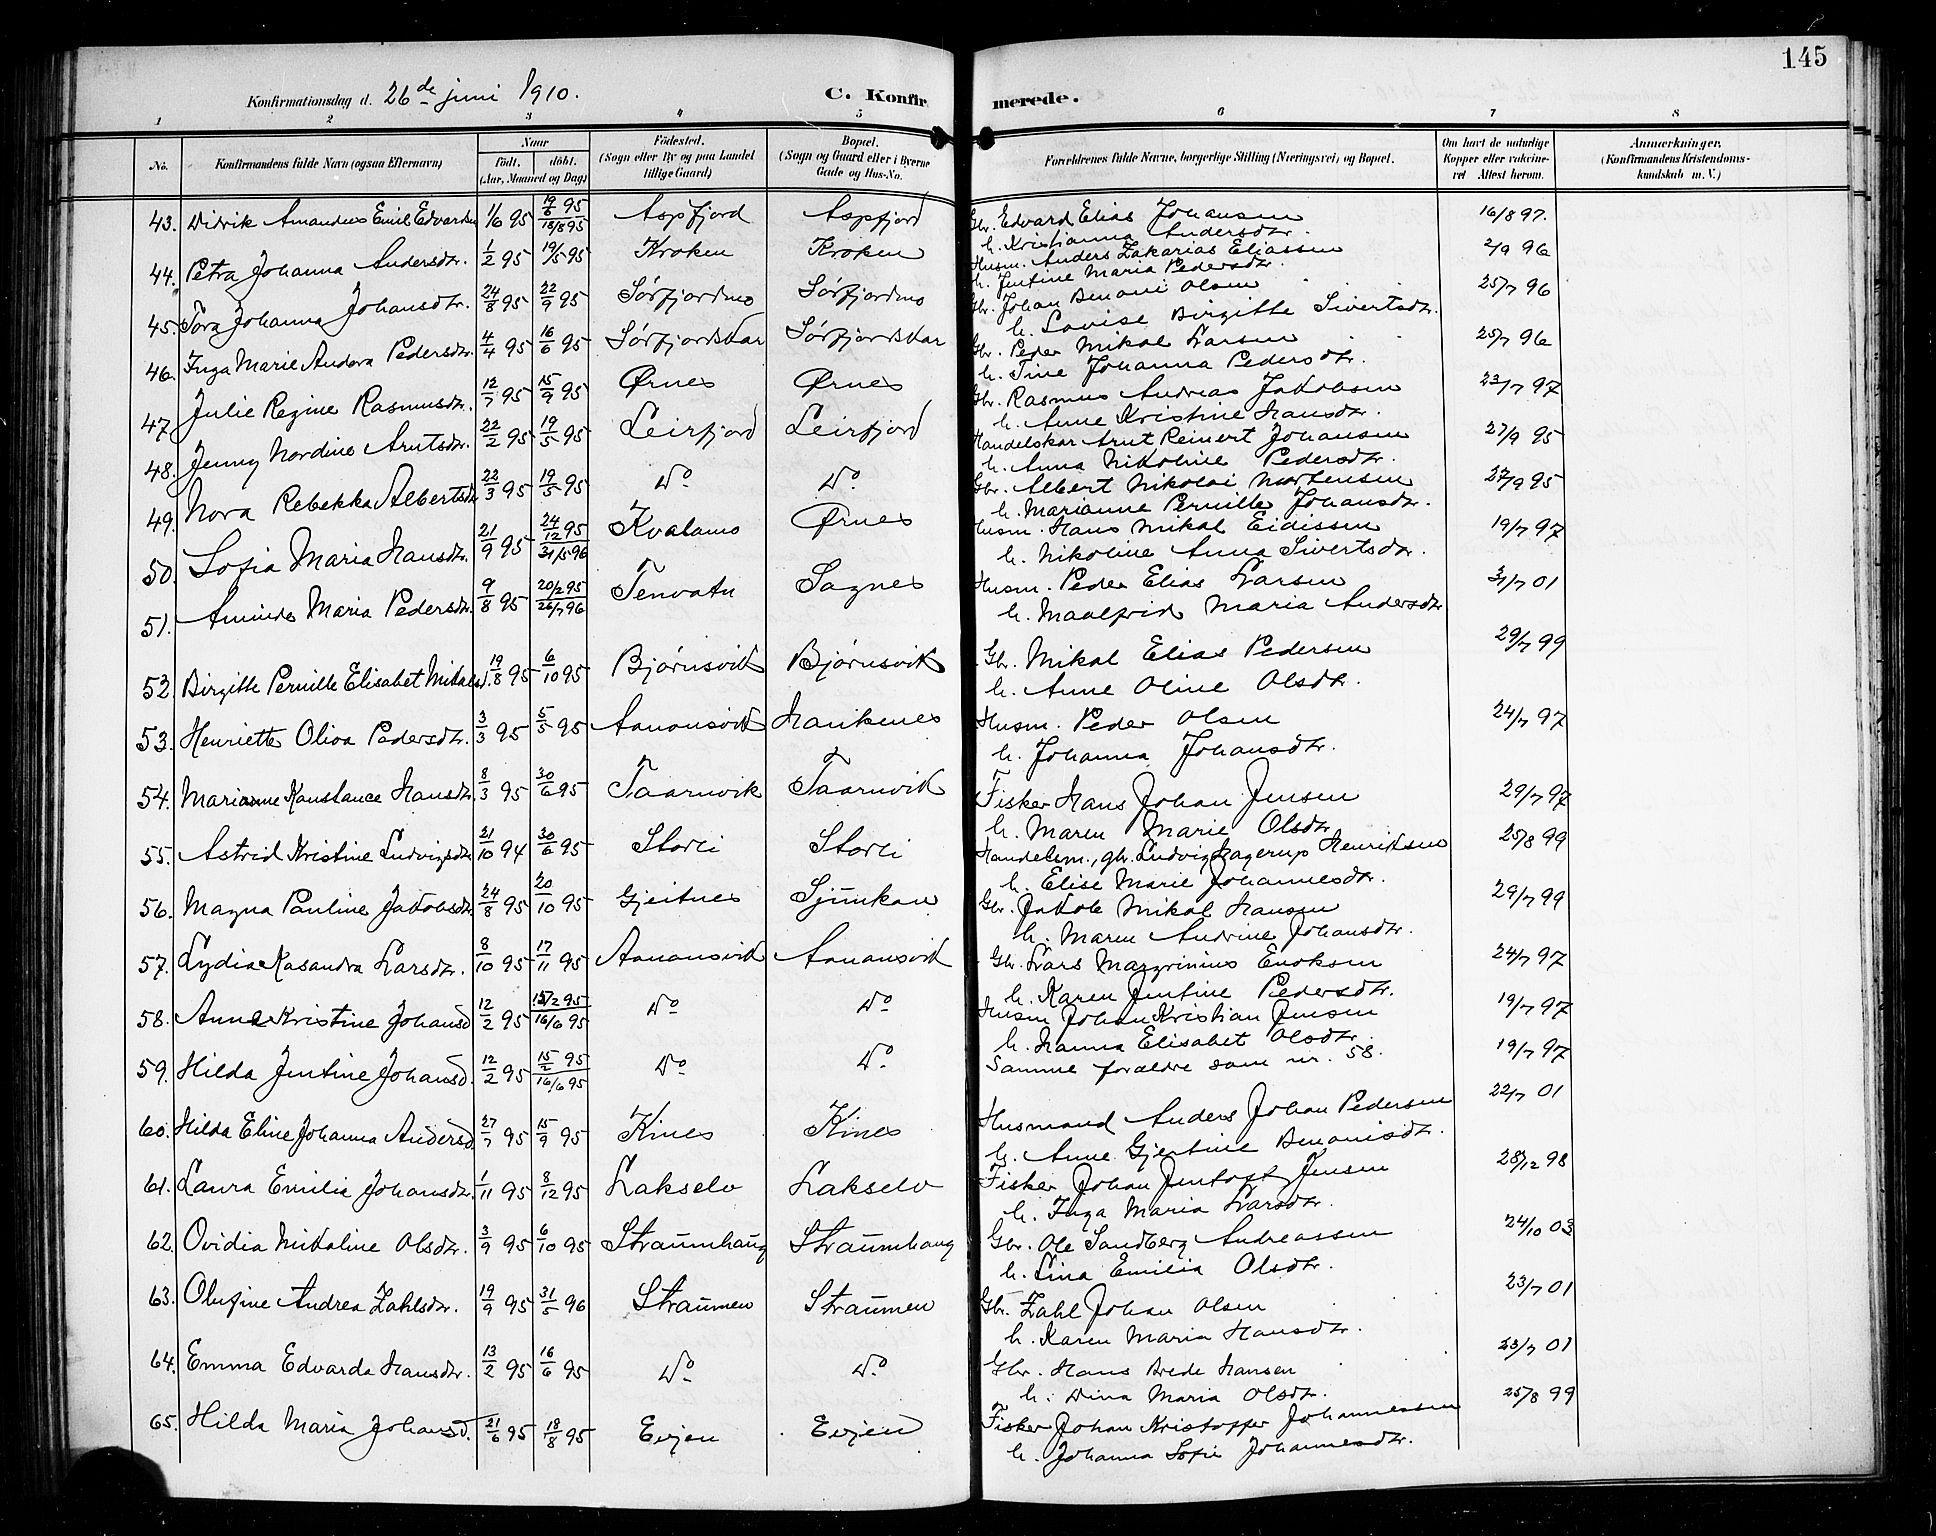 145
Konfirmationsdag d. 26de juni 1910. C. Konfirmerede.
1 2 3 4 5 6 7 8
No. Konfirmandens fulde Navn (ogsaa Efternavn) Naar födt. döbt. (Aar, Maaned og Dag) Födested. (Sogn eller By og paa Landet tillige Gaard) Bopæl. (Sogn og Gaard eller i Byerne Gade og Hus-No. Forældrenes fulde Navne, borgerlige Stilling (Næringsvei) og Bopæl. Om havt de naturlige Kopper eller vaksineret Attest herom. Anmerkninger. (Konfirmandens Kristendomskundskab m. V.)
43. Didrik Amandus Emil Edvardsen 1/6 95 19/6 95 18/8 95 Aspfjord Aspfjord Gbr. Edvard Elias Johansen 16/8 97.
h. Kristianna Andersdtr.
44. Petra Johanna Andersdtr. 1/2 95 19/5 95 Kroken Kroken Husm. Anders Zakarias Eliassen 2/9 96
h. Jentine Maria Pedersdtr.
45. Tora Johanna Johansdtr. 24/8 95 22/9 95 Sörfjordmo Sörfjordmo Gbr. Johan Benoni Olsen 25/7 96
h. Lovise Birgitte Sivertsdtr.
46. Inga Marie Andora Pedersdtr. 4/4 95 16/6 95 Sörfjordskar Sörfjordskar Gbr. Peder Mikal Larsen 25/7 96
h. Tine Johanna Pedersdtr.
47. Julie Regine Rasmusdtr. 12/7 95 15/9 95 Ørnes Ørnes Gbr. Rasmus Andreas Jakobsen 23/7 97
h. Anne Kristine Hansdtr.
48. Jenny Nordine Arntsdtr. 22/2 95 19/5 95 Leirfjord Leirfjord Handelskar Arnt Reinert Johansen 27/9 95
h. Anna Nikoline Pedersdtr.
49. Nora Rebekka Albertsdtr 22/3 95 19/5 95 Do. Do. Gbr. Albert Nikolai Mortensen 27/9 95
h. Marianne Pernille Johansdtr.
50. Sofia Maria Hansdtr. 21/9 95 24/12 95 31/5 96 Kvalamo Ørnes Husm. Hans Mikal Eidissen 19/7 97
h. Nikoline Anna Sivertsdtr.
51. Aminda Maria Pedersdtr. 9/8 95 20/12 95 26/7 96 Tenvatn Sagnes Husm. Peder Elias Larsen 31/7 01
h. Maalfrid Maria Andersdtr
52. Birgitte Pernille Elisabet Mikalsd. 19/8 95 6/10 95 Bjørnsvik Bjørnsvik Gbr. Mikal Elias Pedersen 29/7 99
h. Anne Oline Olsdtr.
53. Henriette Oliva Pedersdtr. 3/3 95 5/5 95 Aanansvik Haukenes Husm. Peder Olsen 24/7 97
h. Johanna Johansdtr.
54. Marianne Konstance Hansdtr. 8/3 95 30/6 95 Taarnvik Taarnvik Fisker Hans Johan Jensen 29/7 97
h. Maren Marie Olsdtr
55. Astrid Kristine Ludvigsdtr 21/10 94 30/6 95 Storli Storli Handelsm., gbr. Ludvig Hagerup Henriksen 25/8 99
h. Elise Marie Johannesdtr.
56. Magna Pauline Jakobsdtr 24/8 95 20/10 95 Gjeitnes Sjünkan Gbr. Jakob Mikal Hansen 29/7 99
h. Maren Andrine Johansdtr.
57. Lydia Kasandra Larsdtr. 8/10 95 17/11 95 Aanansvik Aanansvik Gbr. Lars Magrinius Enoksen 24/7 97
h. Karen Jentine Pedersdtr.
58. Anna Kristine Johansd 12/2 95 15/2 95 16/6 95 Do Do. Husm Johan Kristian Jensen 19/7 97
h. Hanna Elisabet Olsdtr.
59. Hilda Jentine Johansd. 12/2 95 15/2 95 16/6 95 Do Do. Samme forældre som nr. 58. 19/7 97
60. Hilda Eline Johanna Andersd. 27/7 95 15/9 95 Kines Kines Husmand Anders Johan Pedersen 22/7 01
h. Anne Gjertine Benonisdtr.
61. Laura Emilie Johansdtr. 1/11 95 8/12 95 Lakselv Lakselv Fisker Johan Jentoft Jensen 28/12 98
h. Inga Maria Larsdtr.
62. Ovidia Nikoline Olsdtr. 3/9 95 6/10 95 Straümhaüg Straümhaug Gbr. Ole Sandberg Andreassen 24/10 03
h. Lina Emilia Olsdtr.
63. Olufine Andrea Zahlsdtr. 19/9 95 31/5 96 Straümen Straümen Gbr. Zahl Johan Olsen 23/7 01
h. Karen Maria Hansdtr.
64. Emma Edvarda Hansdtr. 13/2 95 16/6 95 Do. Do. Gbr. Hans Brede Hansen 23/7 01
h. Dina Maria Olsdtr.
65. Hilda Maria Johansd. 21/6 95 18/8 95 Evjen Evjen Fisker Johan Kristoffer Johannessen 25/8 99
h. Johanna Sofie Johannesdtr.